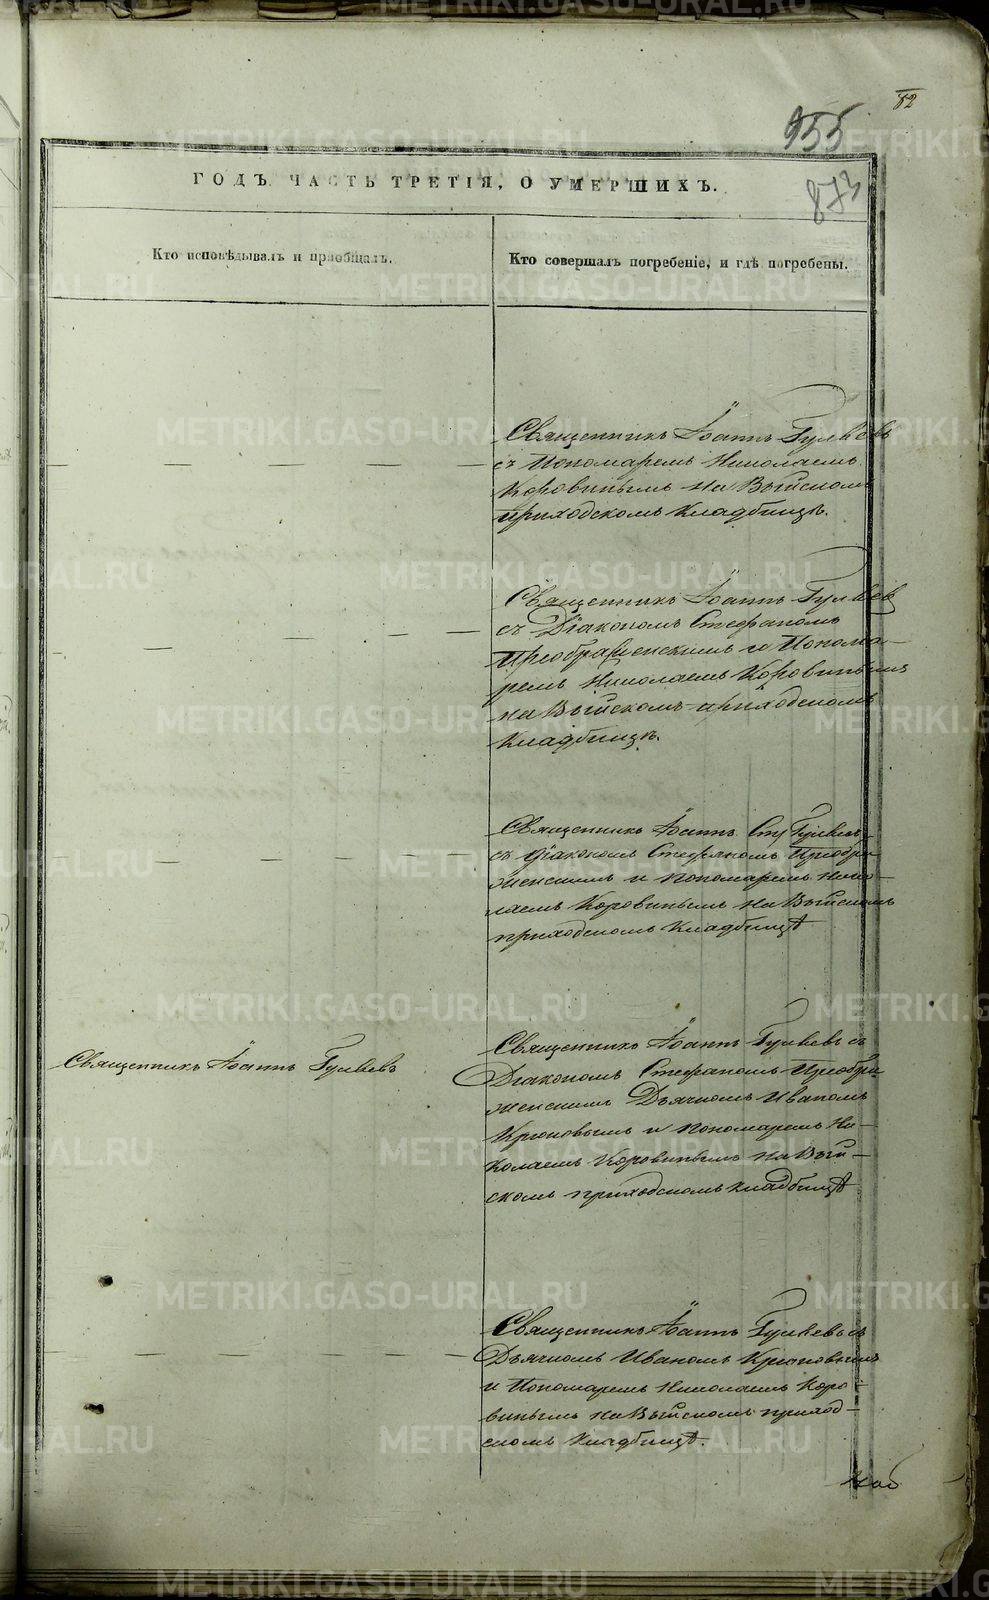 82
955
873
ГОДЪ. ЧАСТЬ ТРЕТІЯ, О УМЕРШИХЪ.
Кто исповѣдывалъ и пріобщалъ.
Кто совершалъ погребеніе, и гдѣ погребены.
Священникъ Іоаннъ Гуляевъ
съ Пономаремъ Николаемъ
Коровинымъ на Выйскомъ
приходскомъ кладбищѣ.
Священникъ Іоаннъ Гуляев
съ Діакономъ Стефаномъ
Преображенскимъ и Понома-
ремъ Николаемъ Коровинымъ
на Выйскомъ приходскомъ
кладбищѣ.
Священникъ Іоаннъ Гуляевъ
съ діакономъ Стефаномъ Преобра
женскимъ и пономаремъ Нико-
лаемъ Коровинымъ на Выйскомъ
приходскомъ кладбищѣ
Священникъ Іоаннъ Гуляевъ
Священникъ Іоаннъ Гуляевъ съ
Діакономъ Стефаномъ Преобра
женскимъ Дьячкомъ Иваномъ
Крюковымъ и пономаремъ Ни-
колаемъ Коровинымъ на Вый-
скомъ приходскомъ кладбищѣ
Священникъ Іоаннъ Гуляевъ съ
Дьячкомъ Иваномъ Крюковымъ
и Пономаремъ Николаемъ Коро-
винымъ на Выйскомъ приход-
скомъ кладбищѣ.
METRIKI.GASO-URAL.RU